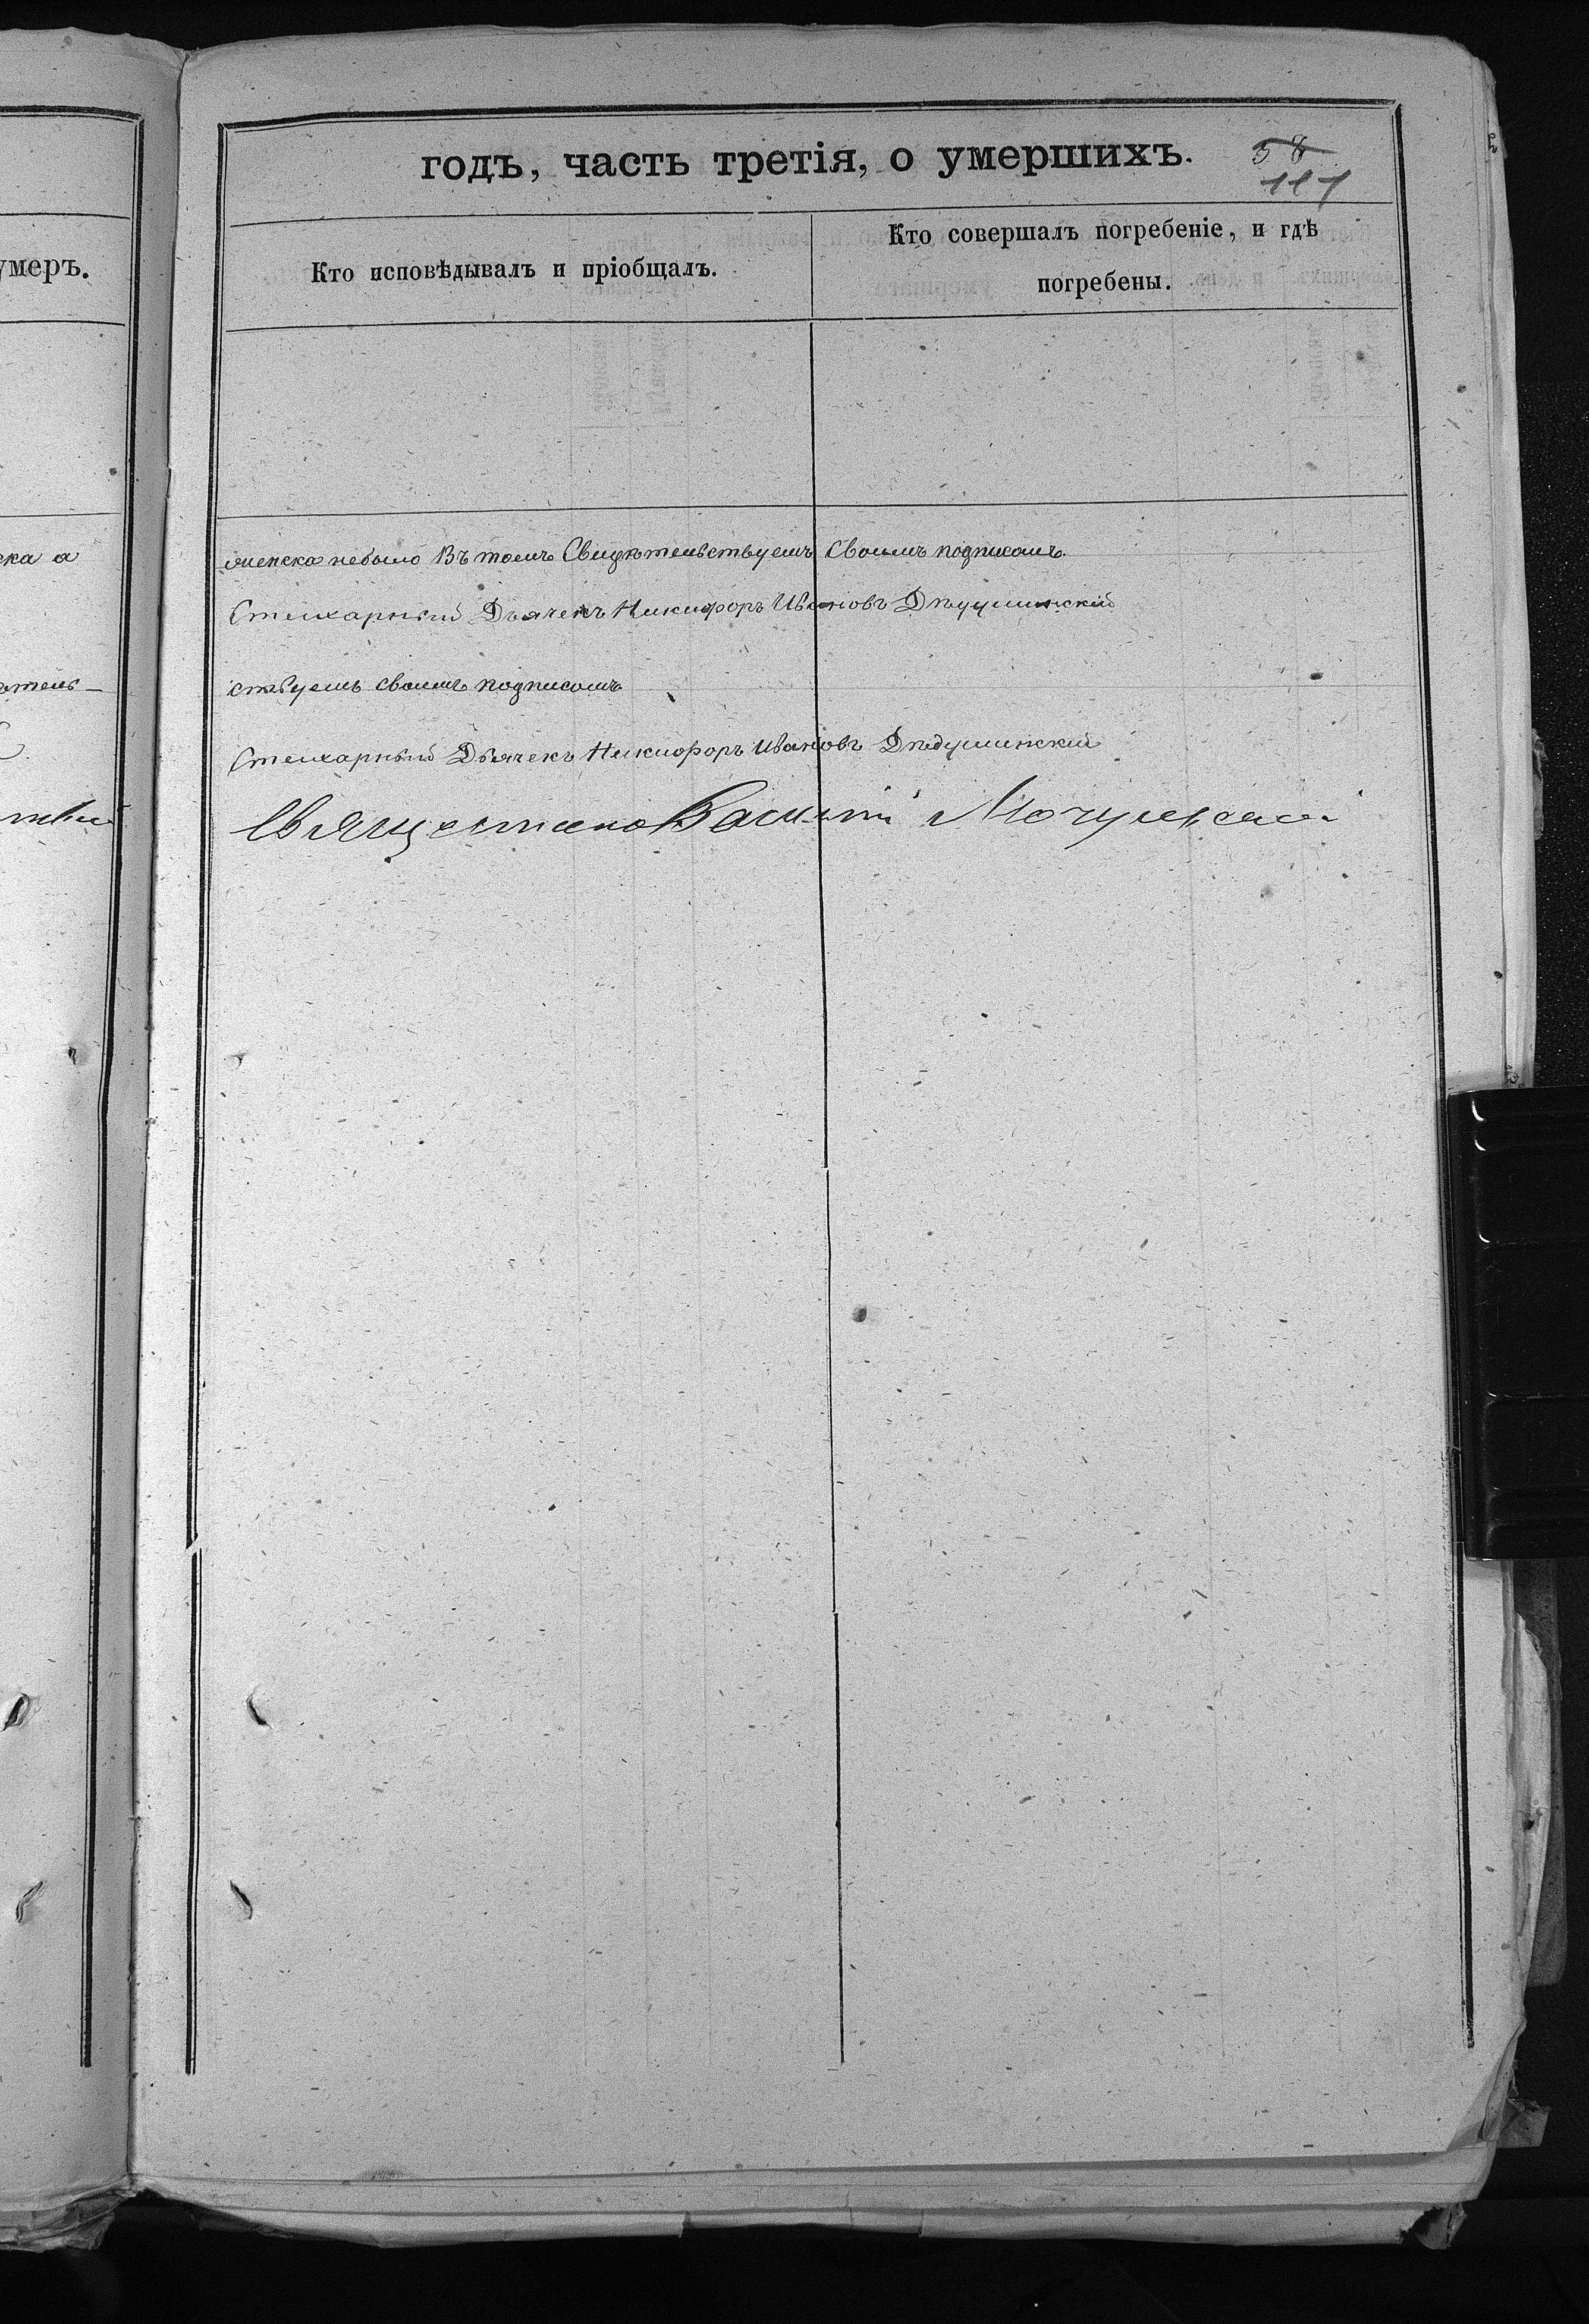 годъ, часть третія, о умершихъ.
58
117
умеръ.
Кто исповѣдывалъ и пріобщалъ.
Кто совершалъ погребеніе, и гдѣ
погребены.
ска а
женска небыло Въ томъ Свидѣтельствуемъ Своимъ подписомъ.
Стихарный Дьячекъ Никифоръ Ивановъ Дѣдушинскій
ѣтель-
ствуемъ своимъ подписомъ
Стихарный Дьячекъ Никифоръ Ивановъ Дѣдушинскій
Священникъ Василій Мочульскій